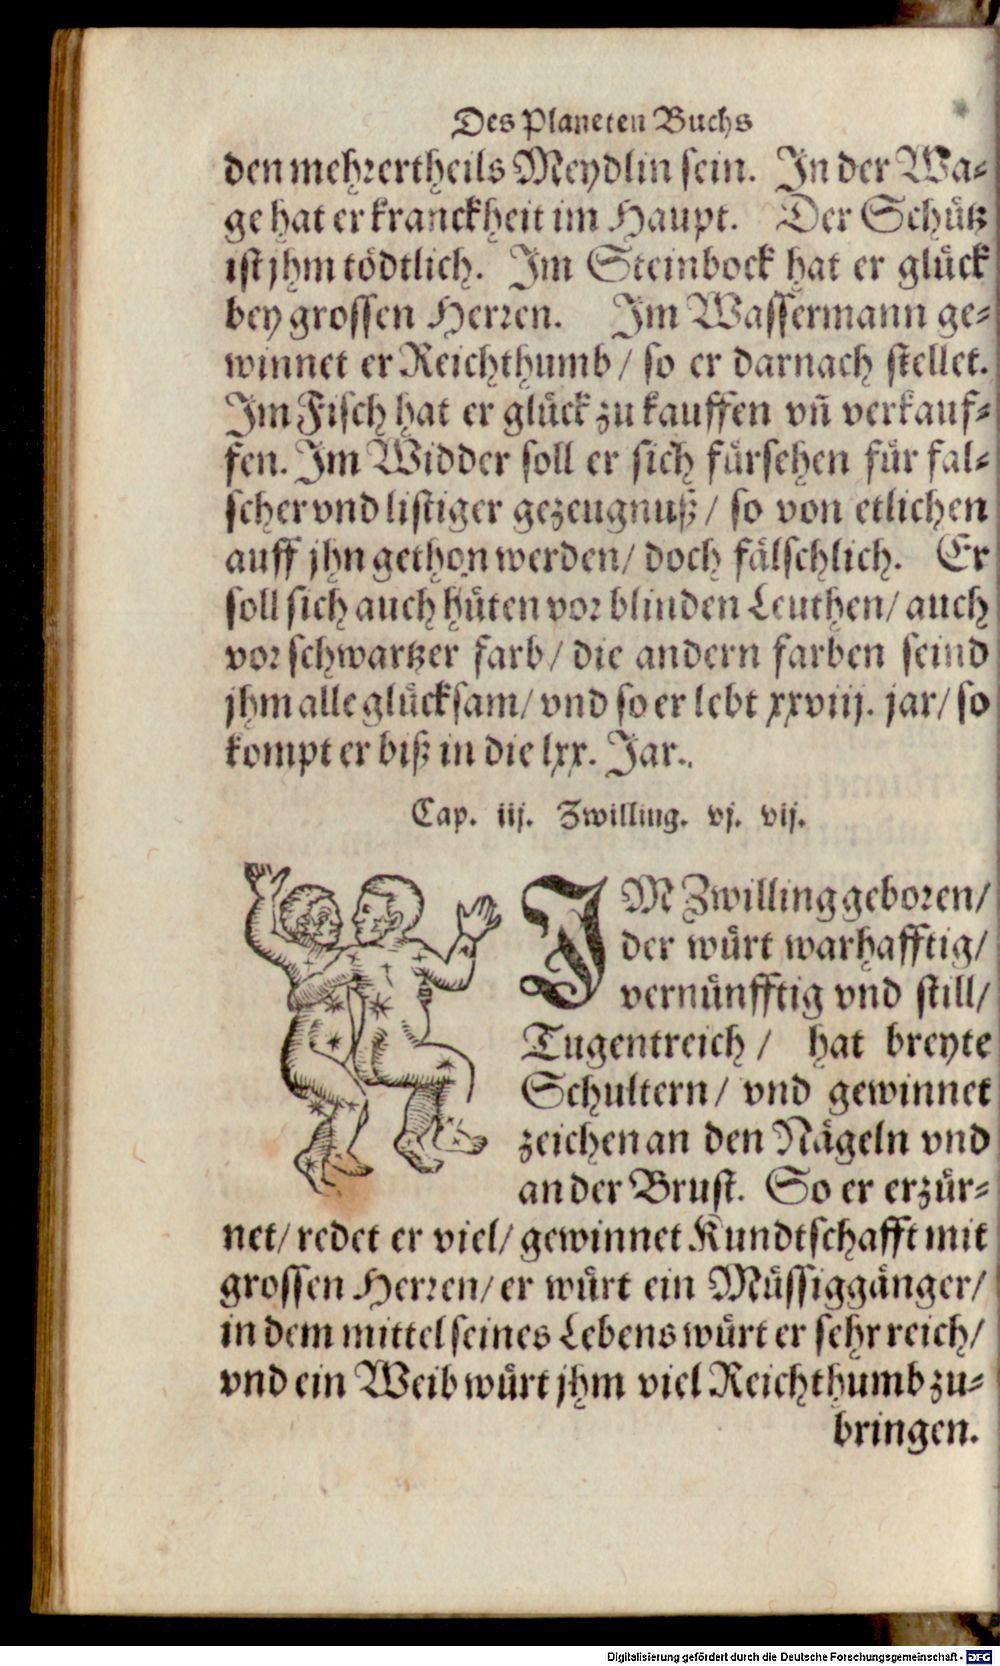 Des Planeten Buchs
den mehrertheils Meydlin sein. In der Wa-
ge hat er kranckheit im Haupt. Der Schütz
ist jhm tödtlich. Im Steinbock hat er glück
bey grossen Herren. Im Wassermann ge-
winnet er Reichthumb / so er darnach stellet.
Im Fisch hat er glück zu kauffen vn̄ verkauf-
fen. Im Widder soll er sich fürsehen für fal-
scher vnd listiger gezeugnuß / so von etlichen
auff jhn gethon werden / doch fälschlich. Er
soll sich auch hüten vor blinden Leuthen / auch
vor schwartzer farb / die andern farben seind
jhm alle glücksam / vnd so er lebt xxviij. jar / so
kompt er biß in die lxx. Jar.
Cap. iij. Zwilling. vj. vij.
IM Zwilling geboren /
der würt warhafftig /
vernünfftig vnd still /
Tugentreich / hat breyte
Schultern / vnd gewinnet
zeichen an den Nägeln vnd
an der Brust. So er erzür-
net / redet er viel / gewinnet Kundtschafft mit
grossen Herren / er würt ein Müssiggänger /
in dem mittel seines Lebens würt er sehr reich /
vnd ein Weib würt jhm viel Reichthumb zu-
bringen.
Digitalisierung gefördert durch die Deutsche Forschungsgemeinschaft - DFG